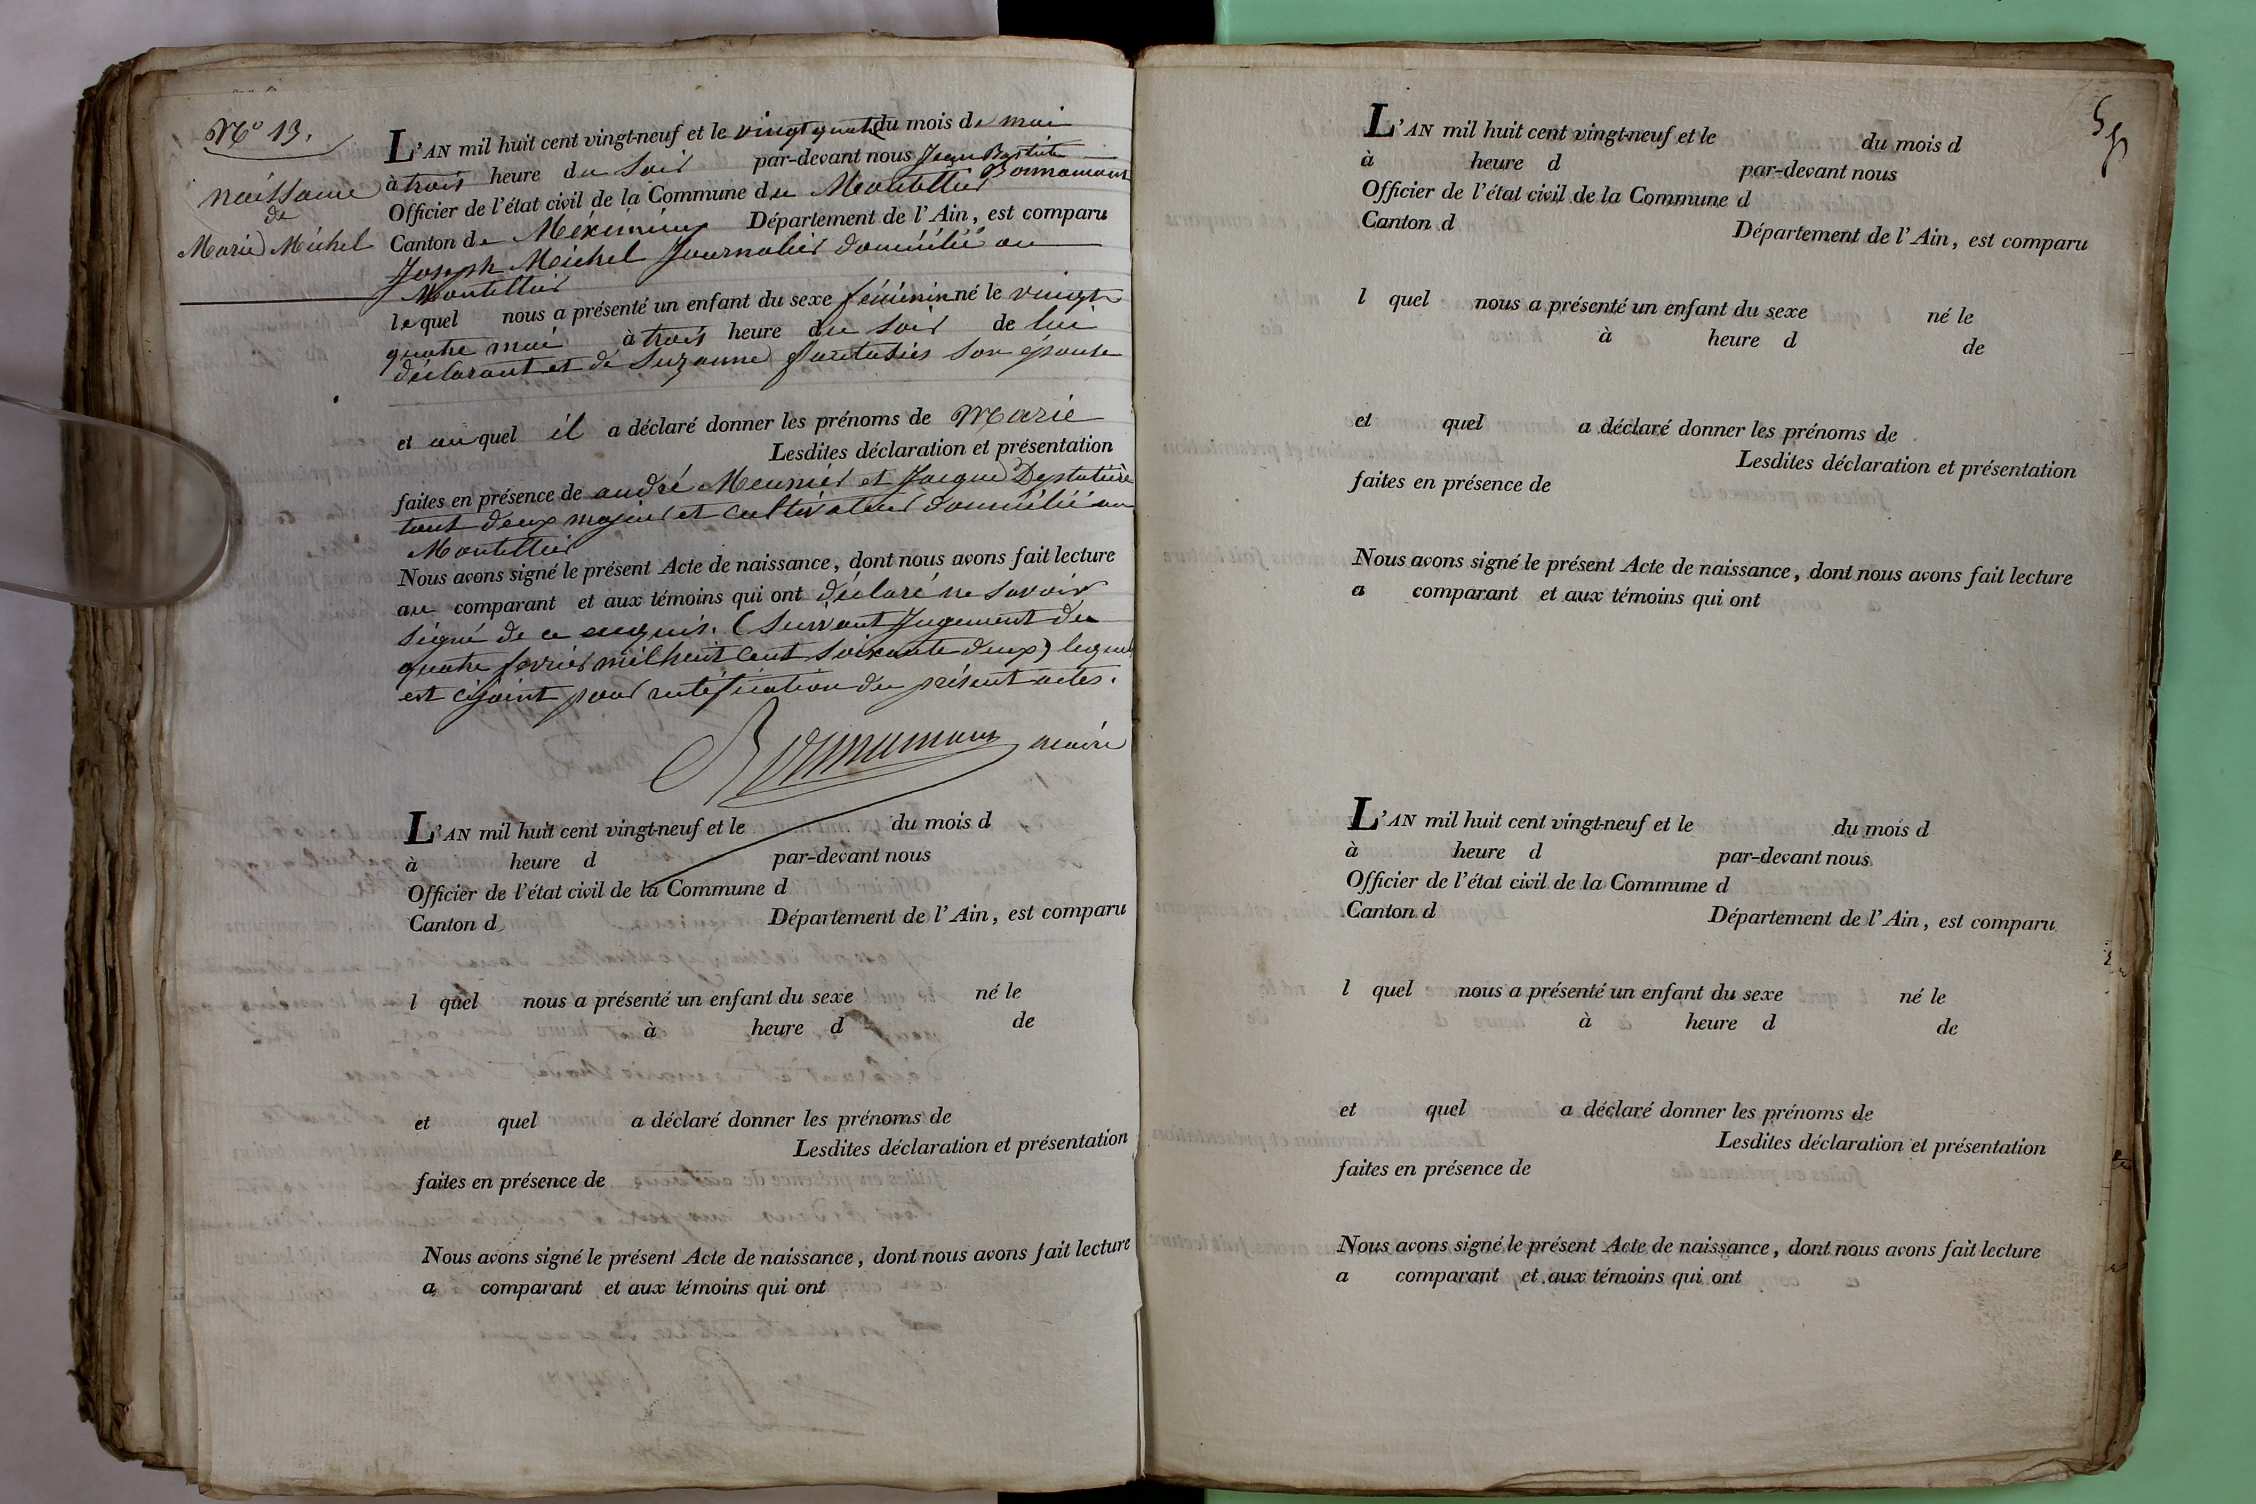 N.o 13.
naissance
de
Marie Michel
L'AN mil huit cent vingt-neuf et le vingt quatre du mois de mai
à trois heure du soir par-devant nous Jean Baptiste
Bonnamour
Officier de l'état civil de la Commune du Montellier
Canton de Méximieux Département de l'Ain, est comparu
Joseph Michel Journalier domicilié au
Montellier
lequel nous a présenté un enfant du sexe féminin né le vingt
quatre mai à trois heure du soir de lui
déclarant et de Suzanne son épouse
et au quel il a déclaré donner les prénoms de Marie
Lesdites déclaration et présentation
faites en présence de andré Meunier et Jacque
tout deux majeur et cultivateur domicilié au
Montellier
Nous avons signé le présent Acte de naissance, dont nous avons fait lecture
au comparant et aux témoins qui ont déclaré ne savoir
signé de ce enquis. (Suivant Jugement du
quatre fevrier mil huit cent soixante deux) lequel
est cijoint pour rectification du présent actes.
Bonnamour maire
L'AN mil huit cent vingt-neuf et le du mois d
à heure d par-devant nous
Officier de l'état civil de la Commune d
Canton d Département de l'Ain, est comparu
l quel nous a présenté un enfant du sexe né le
à heure d de
et quel a déclaré donner les prénoms de
Lesdites déclaration et présentation
faites en présence de
Nous avons signé le présent Acte de naissance, dont nous avons fait lecture
a comparant et aux témoins qui ont
L'AN mil huit cent vingt-neuf et le du mois d
à heure d par-devant nous
Officier de l'état civil de la Commune d
Canton d Département de l'Ain, est comparu
l quel nous a présenté un enfant du sexe né le
à heure d de
et quel a déclaré donner les prénoms de
Lesdites déclaration et présentation
faites en présence de
Nous avons signé le présent Acte de naissance, dont nous avons fait lecture
a comparant et aux témoins qui ont
L'AN mil huit cent vingt-neuf et le du mois d
à heure d par-devant nous
Officier de l'état civil de la Commune d
Canton d Département de l'Ain, est comparu
l quel nous a présenté un enfant du sexe né le
à heure d de
et quel a déclaré donner les prénoms de
Lesdites déclaration et présentation
faites en présence de
Nous avons signé le présent Acte de naissance, dont nous avons fait lecture
a comparant et aux témoins qui ont